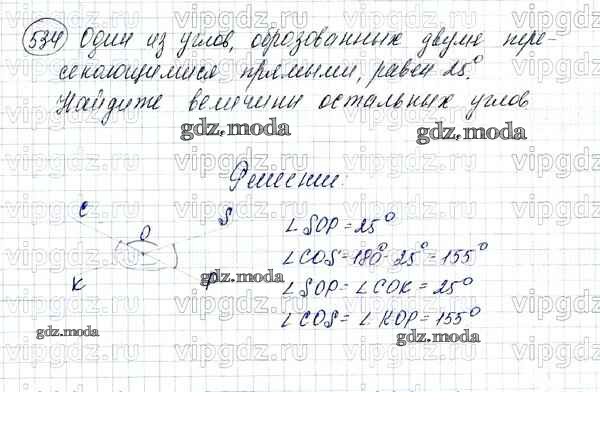 534 Один из углов, образованных двумя пере-
секающимися прямыми, равен 25°.
Найдите величины остальных углов
gdz.moda
gdz.moda
Решение.
C
S
O
K
P
∠SOP = 25°
∠COS = 180° - 25° = 155°
∠SOP = ∠COK = 25°
∠COS = ∠KOP = 155°
gdz.moda
gdz.moda
gdz.moda
vipgdz.ru